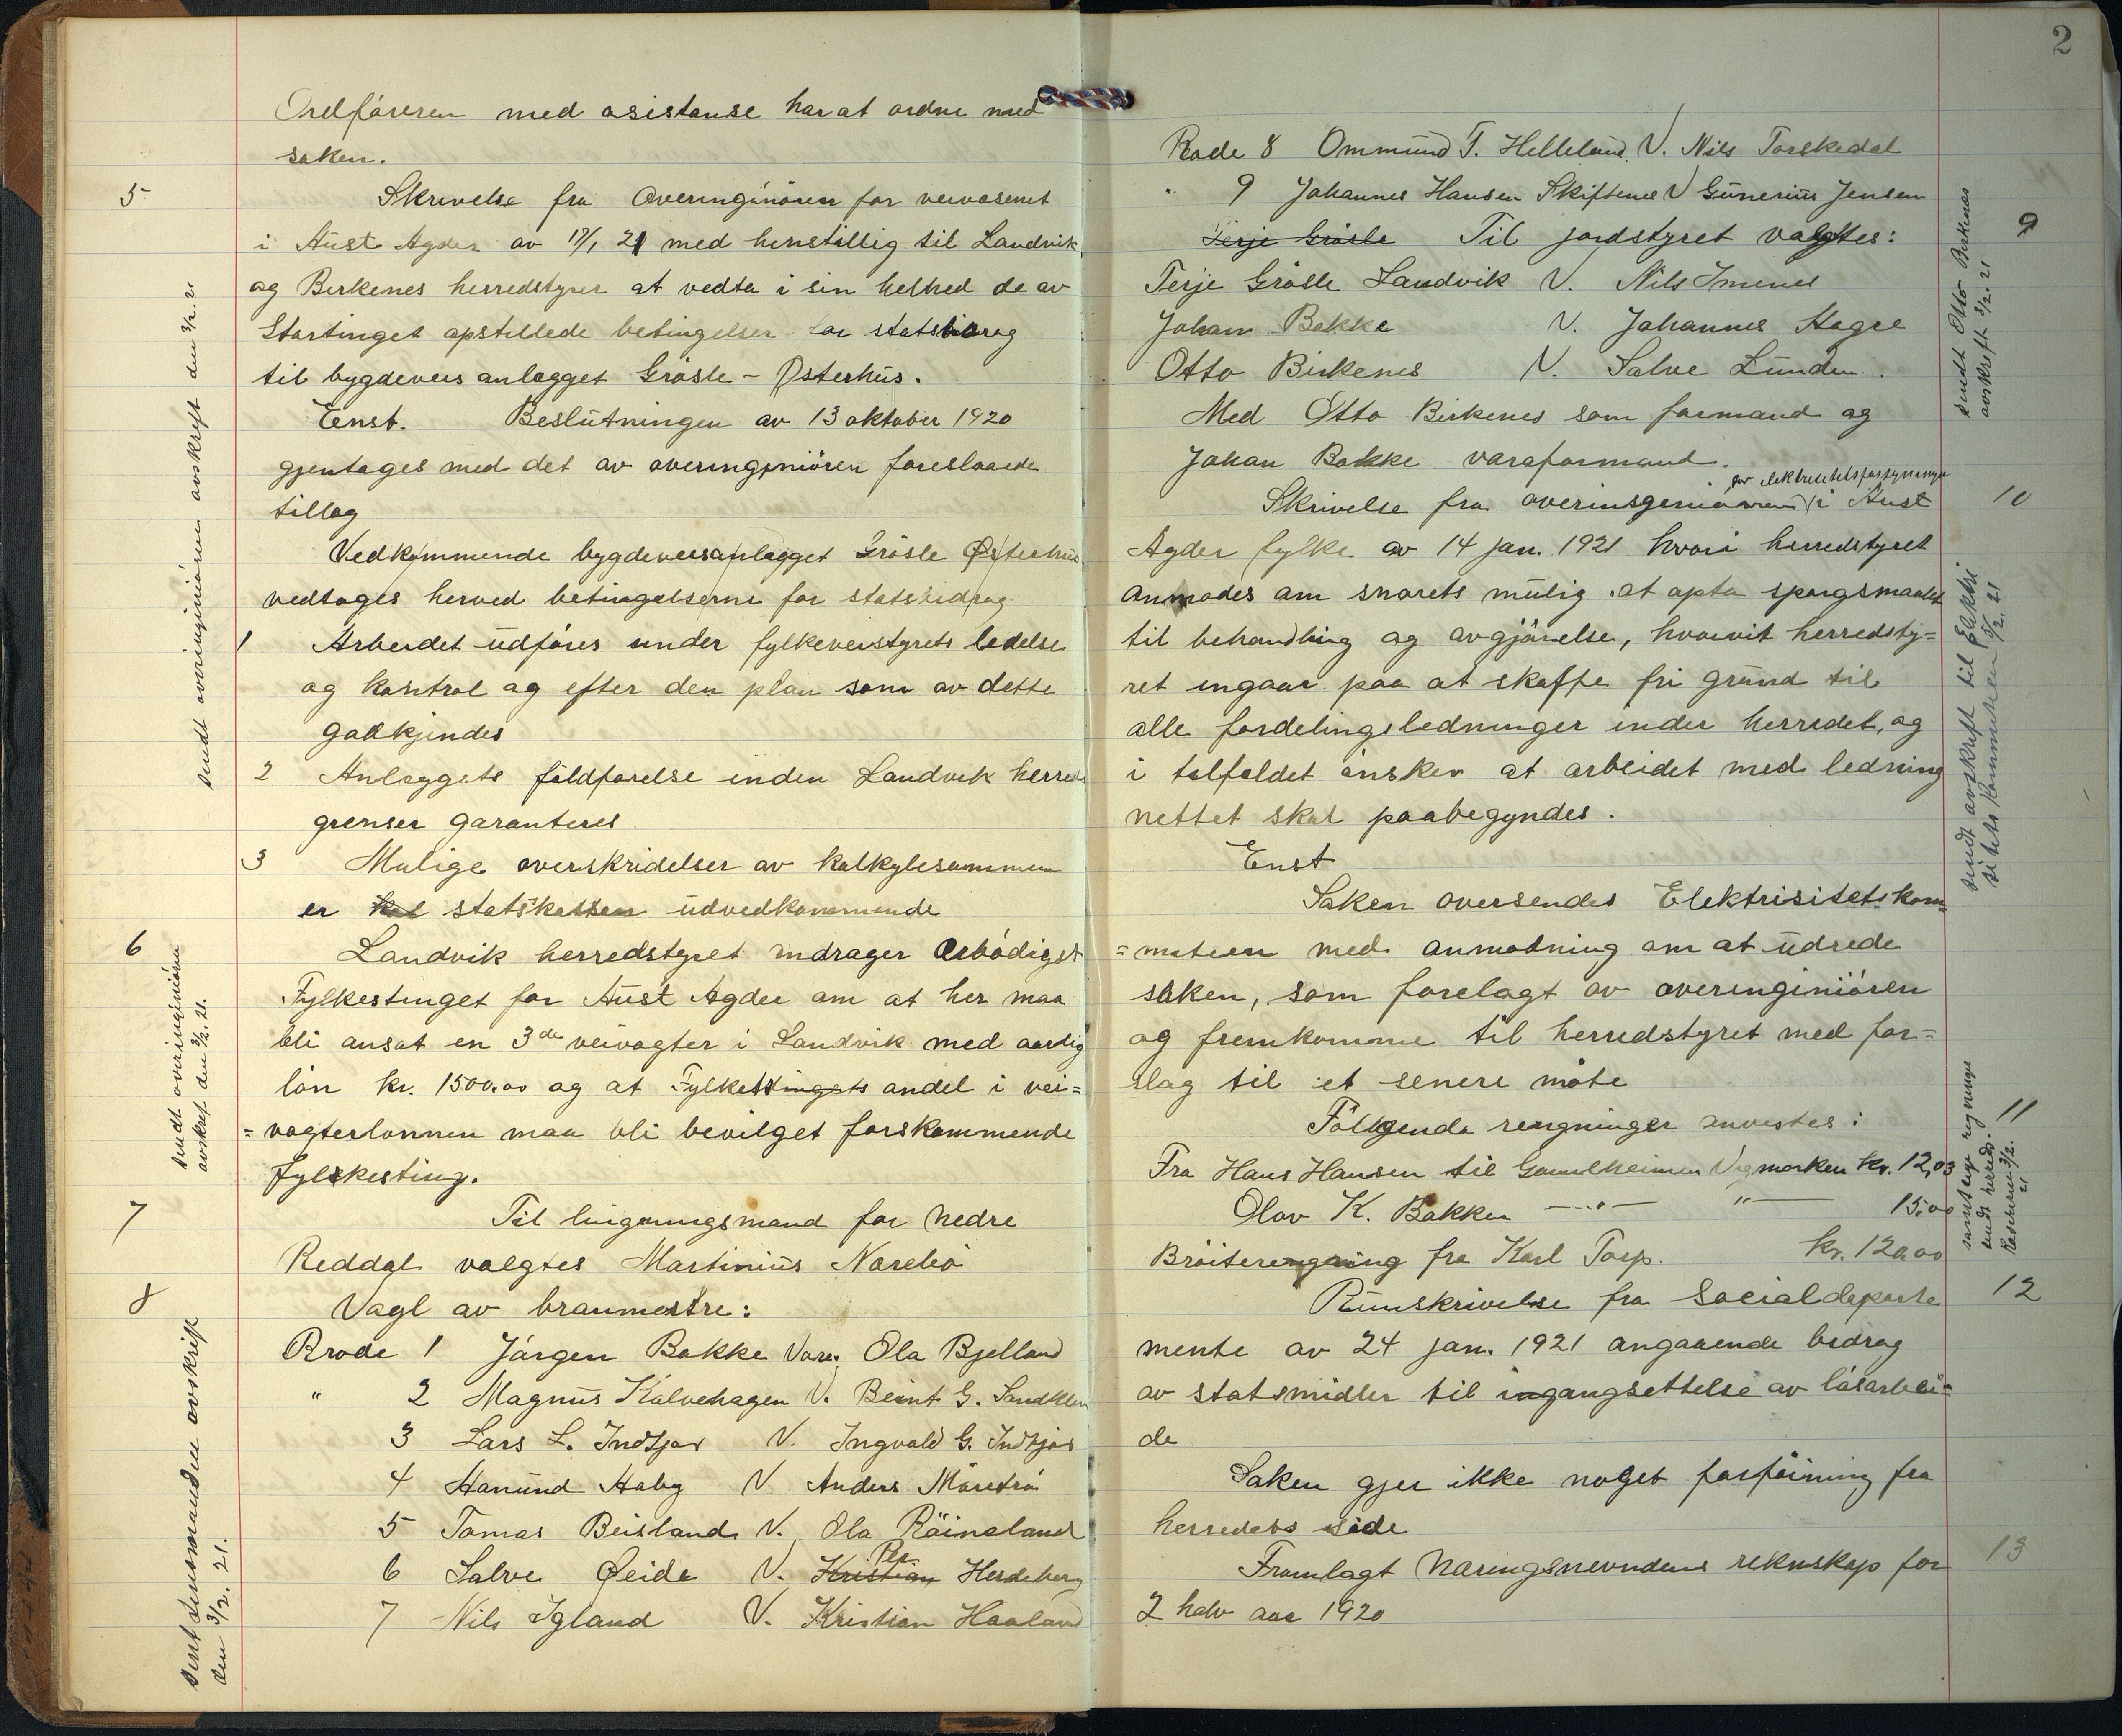 Ordföreren med asistanse har at ordne med
saken.
5
Skrivelse fra Overinginören for veivæsenet
i Aust Agder av 17/1 21 med henstillig til Landvik
og Birkenes herredstyrer at vedta i sin helhed de av
Stortinget opstillede betingelser for statsbidrag
til bygdeveis anlægget Grösle - Østerhus.
Enst. Beslutningen av 13 oktober 1920
gjentages med det av overingeniören foreslaaede
tillæg
Vedkommende bygdeveisanlægget Grösle Østerhus
vedtages herved betingelserne for statsbidrag
1 Arbeidet udföres under fylkeveistyrets ledelse
og kontrol og efter den plan som av dette
godkjendes
2 Anlæggets fuldförelse inden Landvik herreds
grenser garanteres.
3 Mulige overskridelser av kalkylesummen
er statskassen udvedkommende
sendt overinginiören avskryft den 3/2. 21
6
Landvik herredstyret andrager ærbödigst
Fylkestinget for Aust Agder om at her maa
bli ansat en 3de veivogter i Landvik med aarlig
lön kr. 1500.00 og at Fylkestingets andel i vei=
=vogterlönnen maa bli bevilget förskommende
fylkesting.
sendt overinginiören
avskref den 3/2. 21.
7
Til ligningsmand for nedre
Reddal valgtes Martinius Nörebö
8
Vagl av branmestre:
Rode 1 Jörgen Bakke Vare. Ola Bjelland
" 2 Magnus Kalvehagen V. Beint G. Sandklev
3 Lars L. Indtjör V. Ingvald G. Indtjör
4 Aanund Haby V. Anders Möretrö
5 Tomas Beisland V. Ola Röineland
6 Salve Øeide V. Kristian Per Herdeberg
7 Nils Igland V. Kristian Haaland
sent lensmanden avskrift
den 3/2. 21.
2
Rode 8 Ommund T. Helleland. V. Nils Torskedal
" 9 Johannes Hansen Skiftenes V Gunerius Jensen
9
Terje Grösle Til jordstyret valgtes:
Terje Grösle Landvik V. Nils Imenes
Johan Bakke V. Johannes Hagre
Otto Birkenes V. Salve Lunden.
Med Otto Birkenes som formand og
Johan Bakke varaformand.
sendt Otto Birkenes
avskrift 3/2. 21
10
for elektrisitetsforsyningen
Skrivelse fra overinsgeniören i Aust
Agder fylke av 14 jan. 1921 hvori herredstyret
anmodes om snarets mulig at opta spörgsmaalet
til behandling og avgjörelse, hvorvit herredsty=
ret ingaar paa at skaffe fri grund til
alle fordelingsledninger inder herredet, og
i tilfældet önsker at arbeidet med ledning
nettet skal paabegyndes.
Enst
Saken oversendes Elektrisitetskom=
=miteen med anmodning om at udrede
saken, som forelagt av overinginiören
og fremkomme til herredstyret med for=
slag til et senere möte
sendt avskrift til Elektri
sitets Kommiteen 3/2. 21
11
Fölgende rengninger anvistes:
Fra Hans Hansen til Gamlheimen Vegmorken kr. 12,03
Olav K. Bakken —"— "— 15,00
Bröiterengning fra Karl Torp. kr. 120.00
samtlige regninge
sendt herreds.
kaserer 3/2.
21
12
Runskrivelse fra Socialdeparte
mente av 24 jan. 1921 angaaende bidrag
av statsmidler til ingangsettelse av lösarbei=
de
Saken gjer ikke noget forföining fra
herredets side
13
Framlagt næringsnevndens rekneskap for
2 halv aar 1920